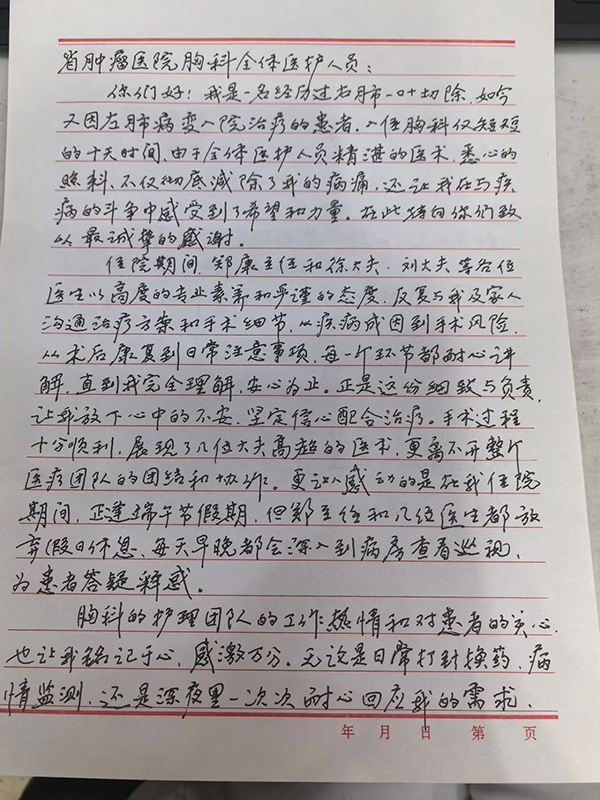 省肿瘤医院胸科全体医护人员：
你们好！我是一名经历过右肺一叶切除，如今
又因左肺病变入院治疗的患者。入住胸科仅短短
的十天时间，由于全体医护人员精湛的医术、悉心的
照料，不仅彻底减除了我的病痛，还让我在与疾
病的斗争中感受到了希望和力量。在此特向你们致
以最诚挚的感谢。
住院期间，郑康主任和徐大夫、刘大夫等各位
医生以高度的专业素养和严谨的态度，反复与我及家人
沟通治疗方案和手术细节，从疾病成因到手术风险，
从术后康复到日常注意事项，每一个环节都耐心讲
解，直到我完全理解、安心为止。正是这份细致与负责，
让我放下心中的不安，坚定信心配合治疗。手术过程
十分顺利，展现了几位大夫高超的医术，更离不开整个
医疗团队的团结和协作。更让人感动的是在我住院
期间，正逢端午节假期，但郑主任和几位医生都放
弃假日休息，每天早晚都会深入到病房查看巡视，
为患者答疑释惑。
胸科的护理团队的工作热情和对患者的关心，
也让我铭记于心，感激万分。无论是日常打针换药、病
情监测，还是深夜里一次次耐心回应我的需求，
年 月 日 第 页